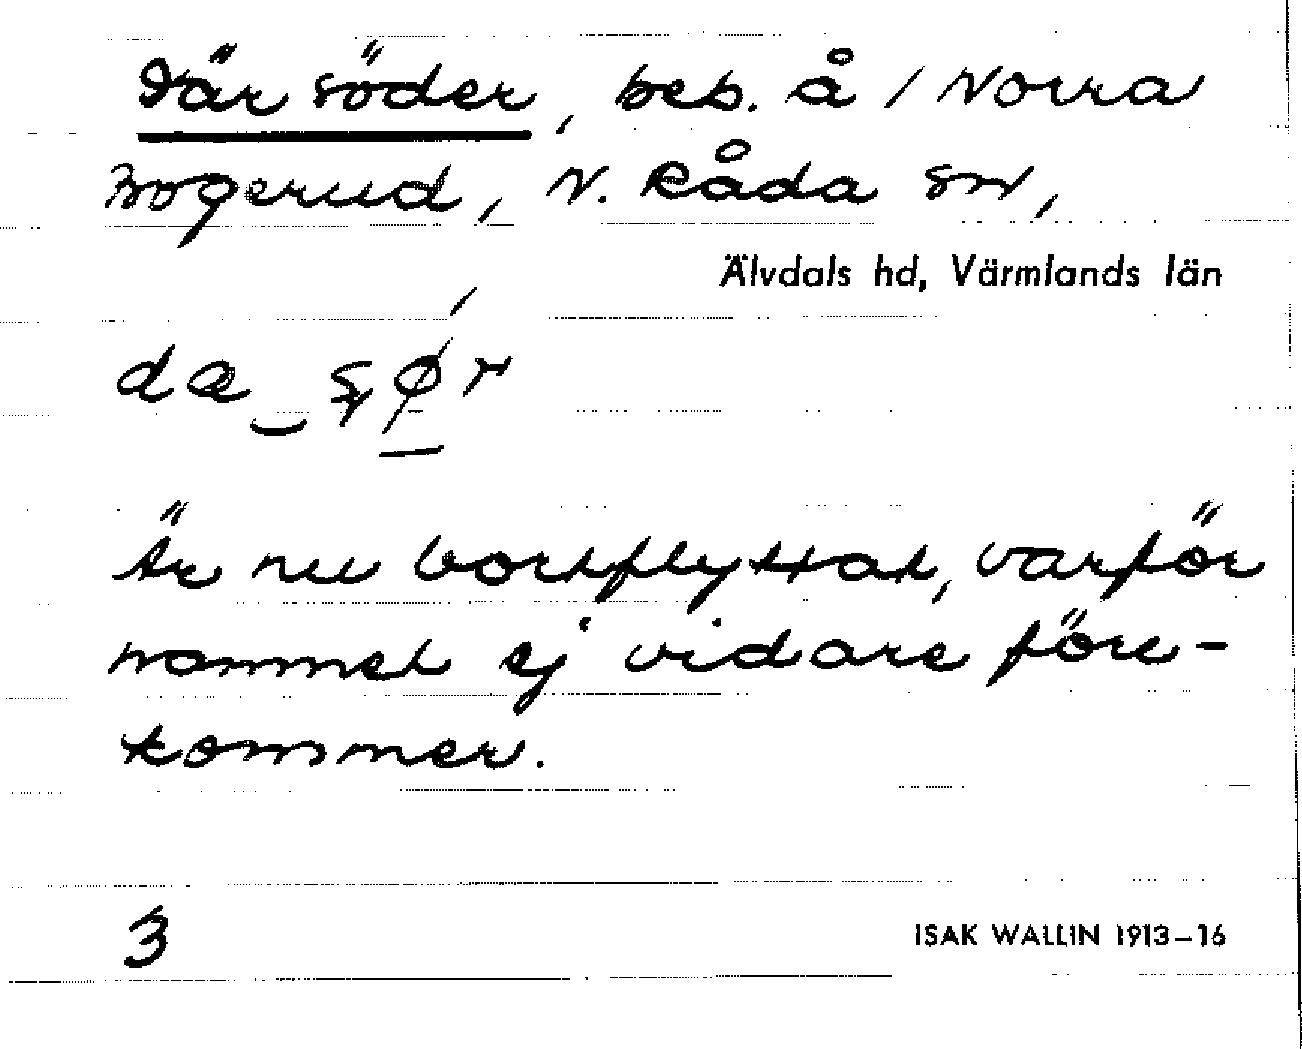 Där söder, beb. å 1 Norra
Bogerud, N. Råda sn,
Älvdals hd, Värmlands län
dæ‿
Är nu bortflyttat, varför
namnet ej vidare före-
kommer.
3
ISAK WALLIN 1913–16